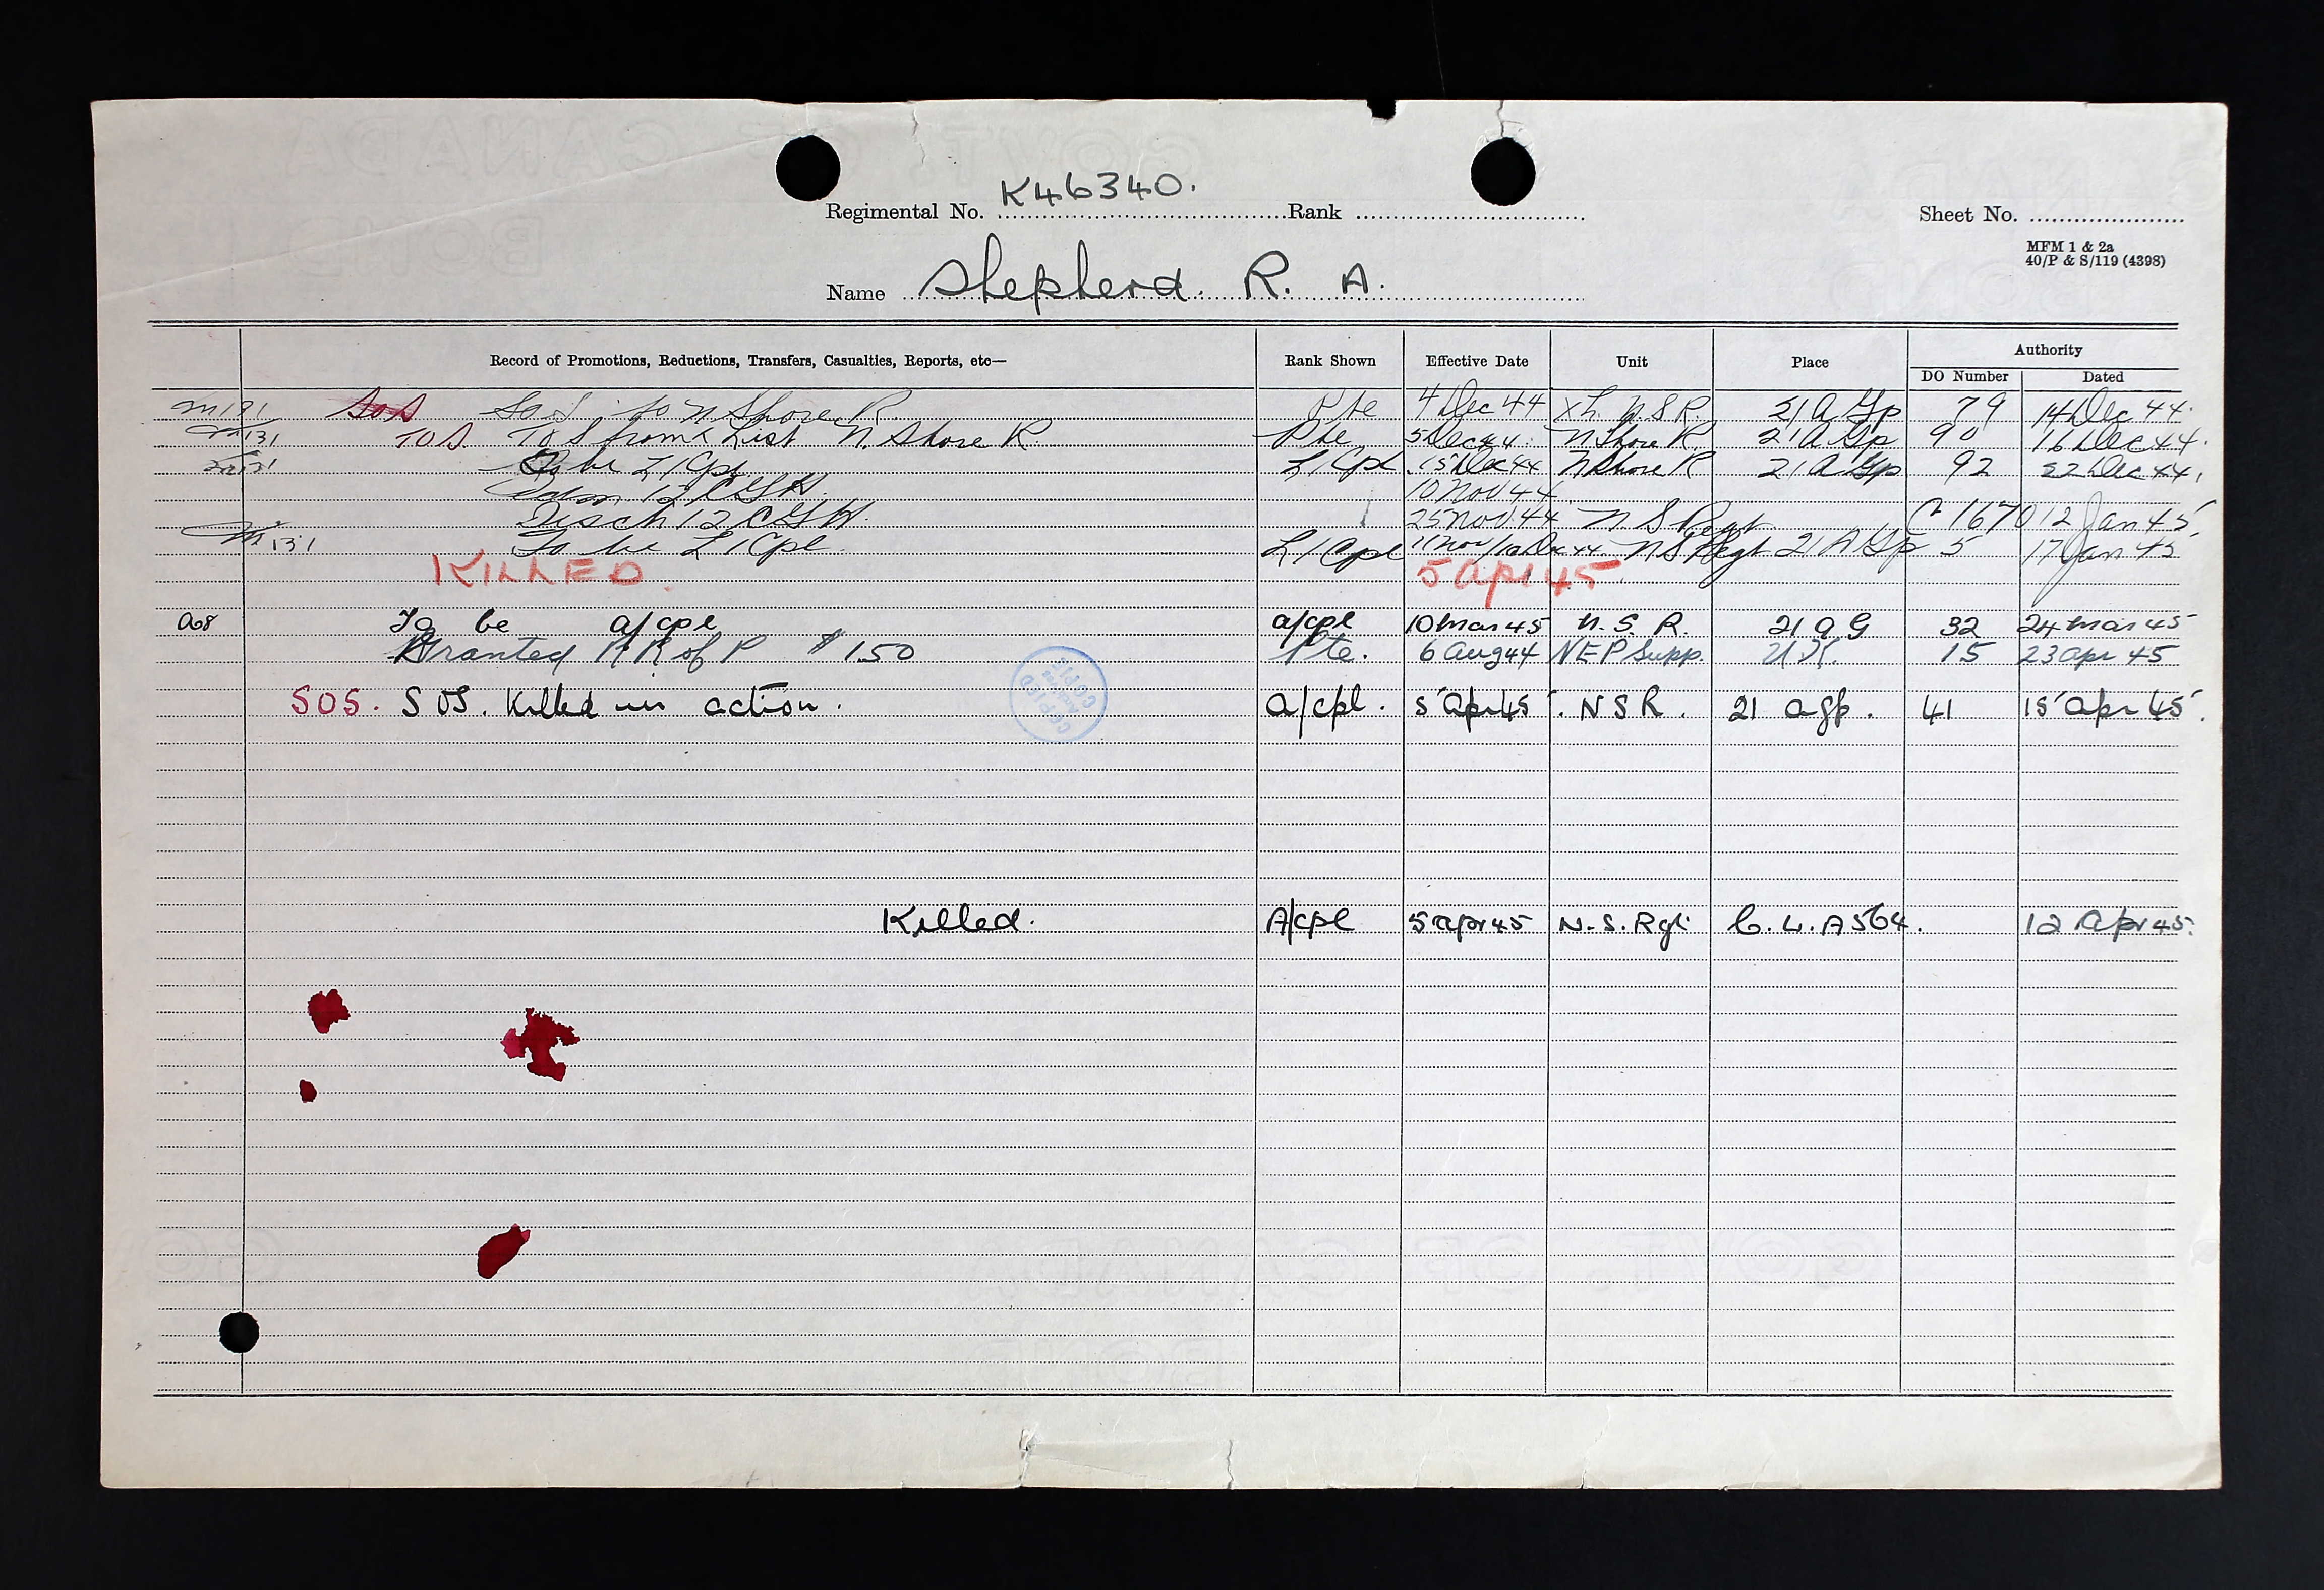 K46340.
Regimental No. Rank
Sheet No.
MFM 1 & 2a
40/P & S/119 (4398)
Name Shepherd. R. A.
Record of Promotions, Reductions, Transfers, Casualties, Reports, etc— Rank Shown Effective Date Unit Place Authority
DO Number Dated
SOS SOS to N Shore R Pte 4 Dec 44 N.S.R. 21 A Gp 79 14 Dec 44.
M131 TOS TOS from X List N. Shore R Pte 5 Dec 44 N Shore R 21 A Gp 90 16 Dec 44.
To be L/Cpl L/Cpl 15 Dec 44 N Shore R 21 A Gp 92 22 Dec 44.
Adm 12 CGH. 10 Nov 44
Disch 12 CGH. 25 Nov 44 N S Regt 1670 12 Jan 45
M131 To be L/Cpl L/Cpl N S Regt 21 A Gp 5 17 Jan 45
KILLED. 5 Apr 45
A68 To be a/cpl a/cpl 10 Mar 45 N. S. R. 21 A G 32 24 Mar 45
Granted RR of P $1.50 Pte. 6 Aug 44 NEP Supp. U.K. 15 23 Apr 45
SOS. SOS. Killed in action. A/cpl. 5 Apr 45. NSR. 21 agp. 41 15 Apr 45.
COPIED
COPIE
Killed. A/cpl 5 Apr 45 N.S. Rgt C.L. A564. 12 Apr 45.
GOVT. OF CANADA
BOND